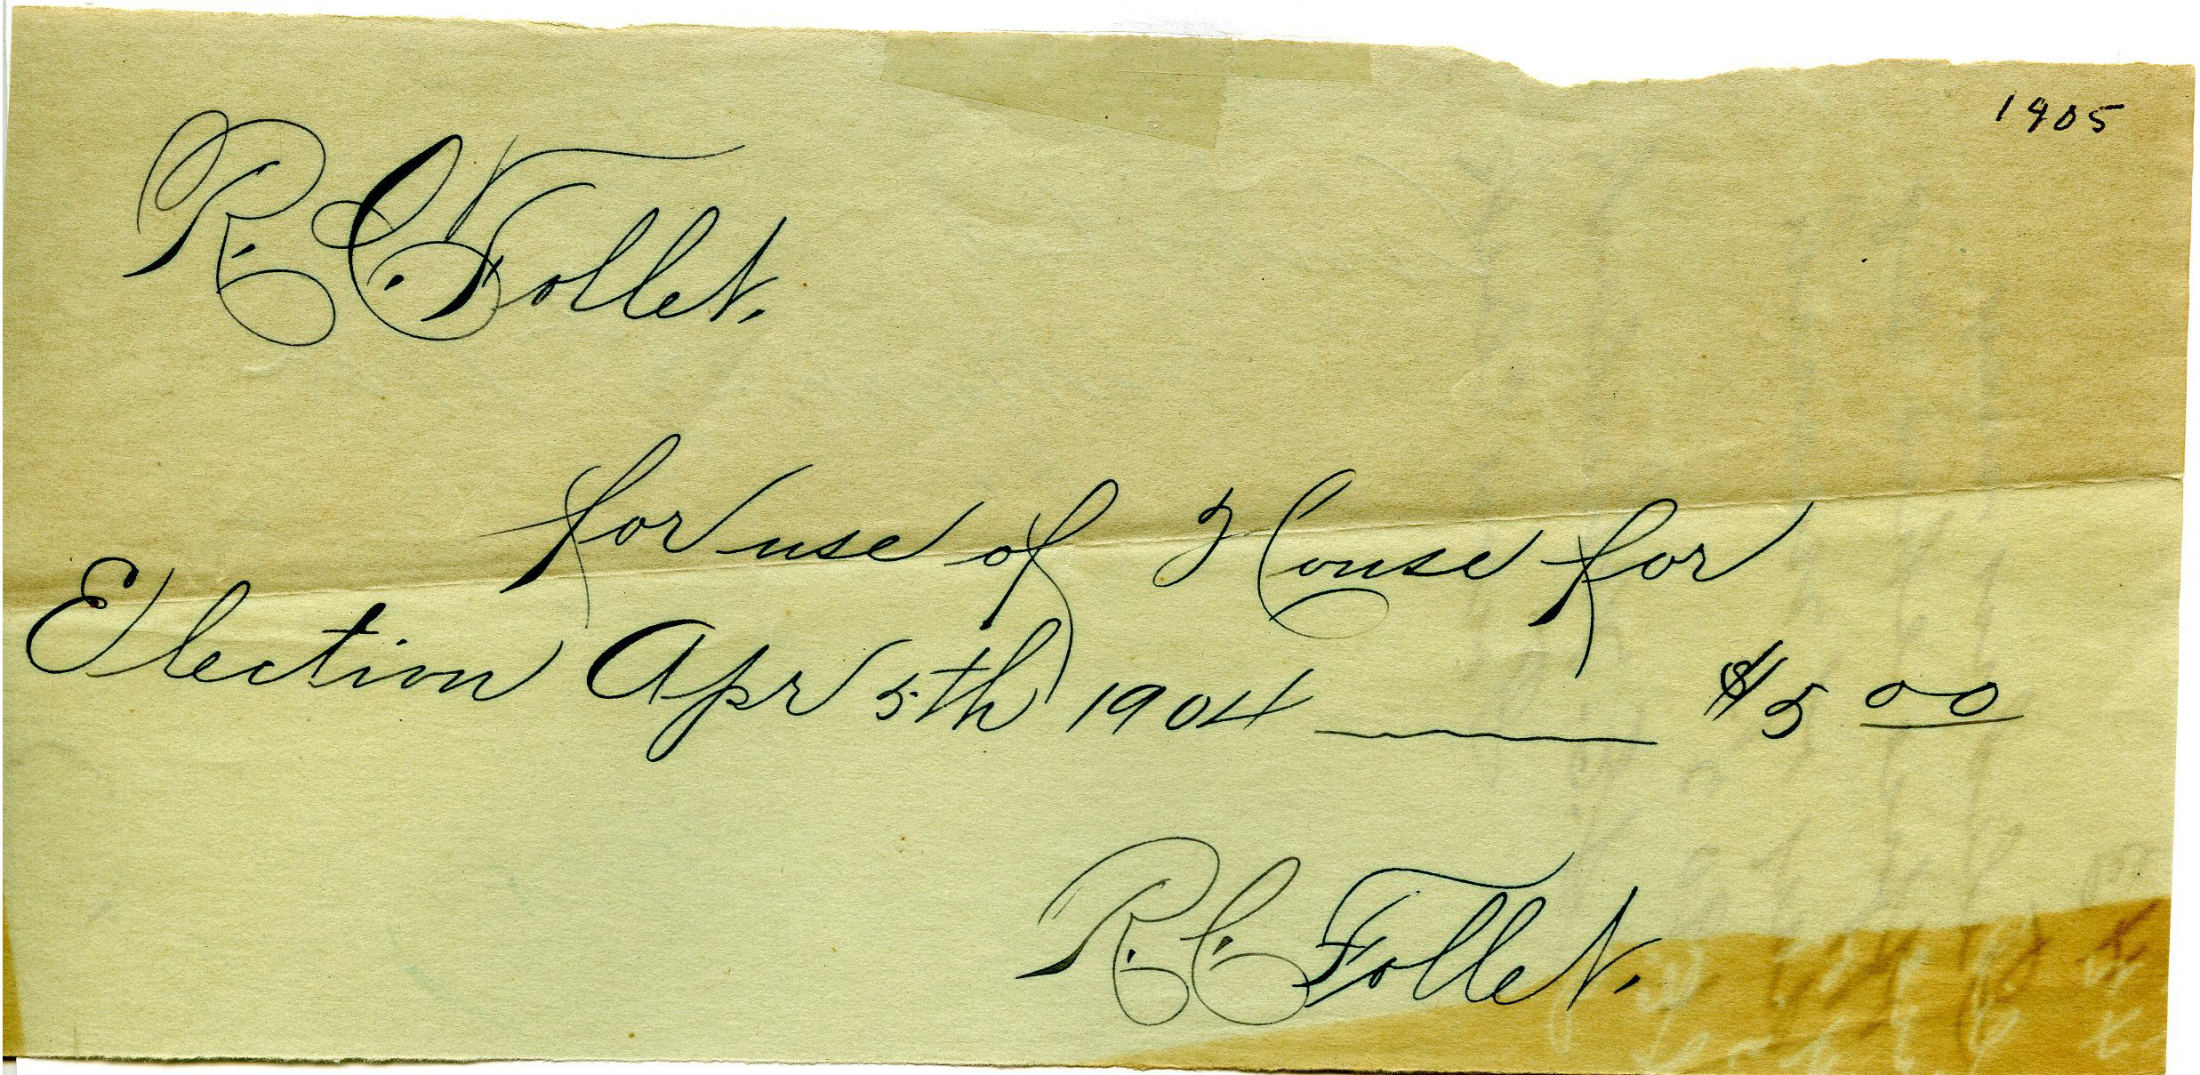 1905
R. C. Follet.
for use of House for
Election Apr 5th 1904 $5 00
R. C. Follet.